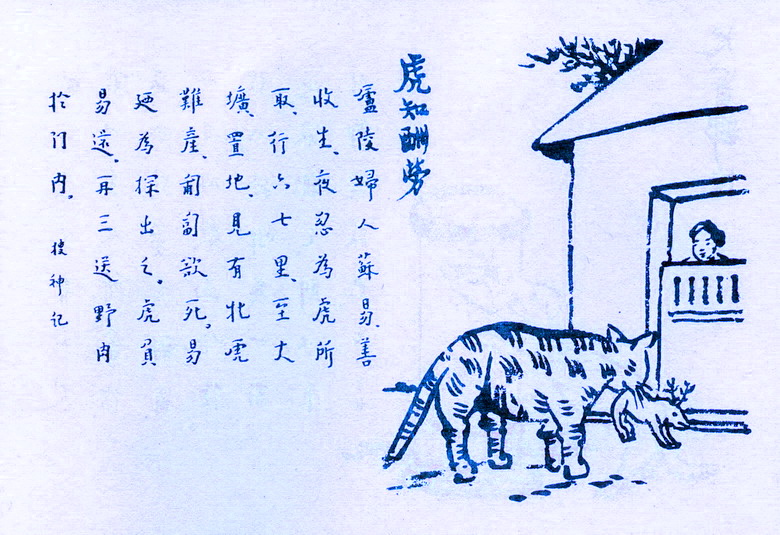 虎知酬勞
廬陵婦人蘇易、善
收生、夜忽為虎所
取、行六七里、至大
壙、置地、見有牝虎
難產、匍匐欲死。易
廼為探出之。虎負
易還、再三送野肉
於门内。 搜神记